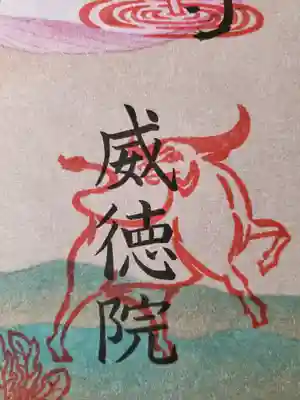 威徳院